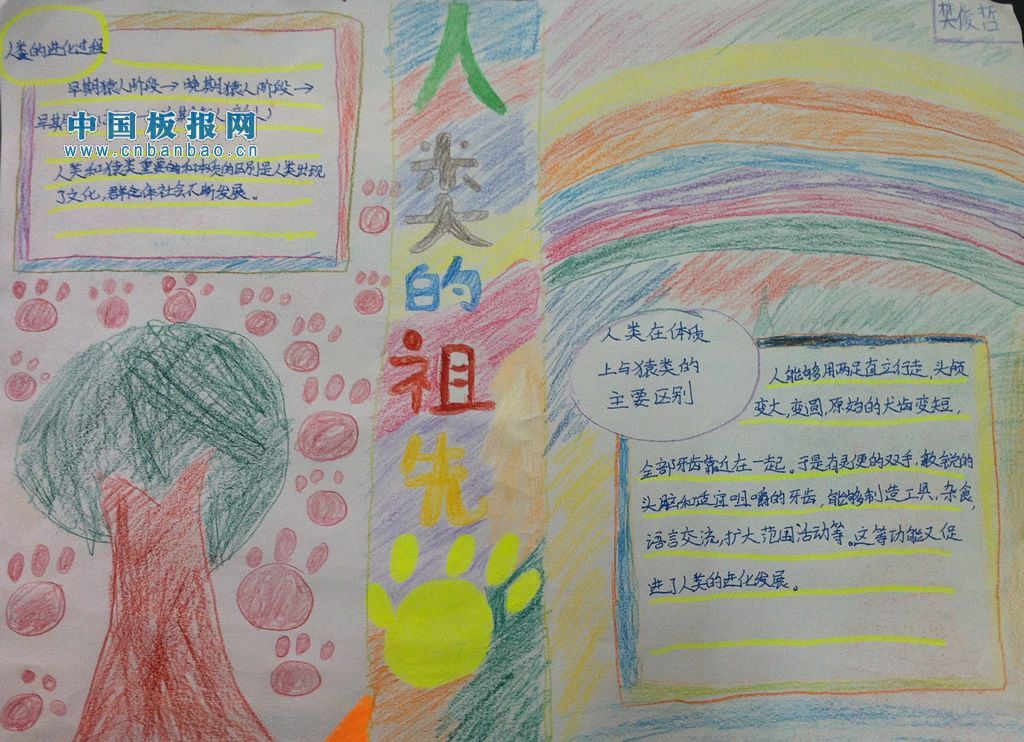 樊俊哲
人类的进化过程
早期猿人阶段→晚期猿人阶段→
早期
中国板报网
www.cnbanbao.cn
人类和猿类重要的和本质的区别是人类出现
了文化,群定体社会不断发展。
人类的祖先
人类在体质
上与猿类的
主要区别
人能够用两足直立行走,头颅
变大,变圆,原始的犬齿变短,
全部牙齿靠近在一起。于是有灵便的双手,敏锐的
头脑和适宜咀嚼的牙齿,能够制造工具,杂食,
语言交流,扩大范围活动等。这等功能又促
进了人类的进化发展。